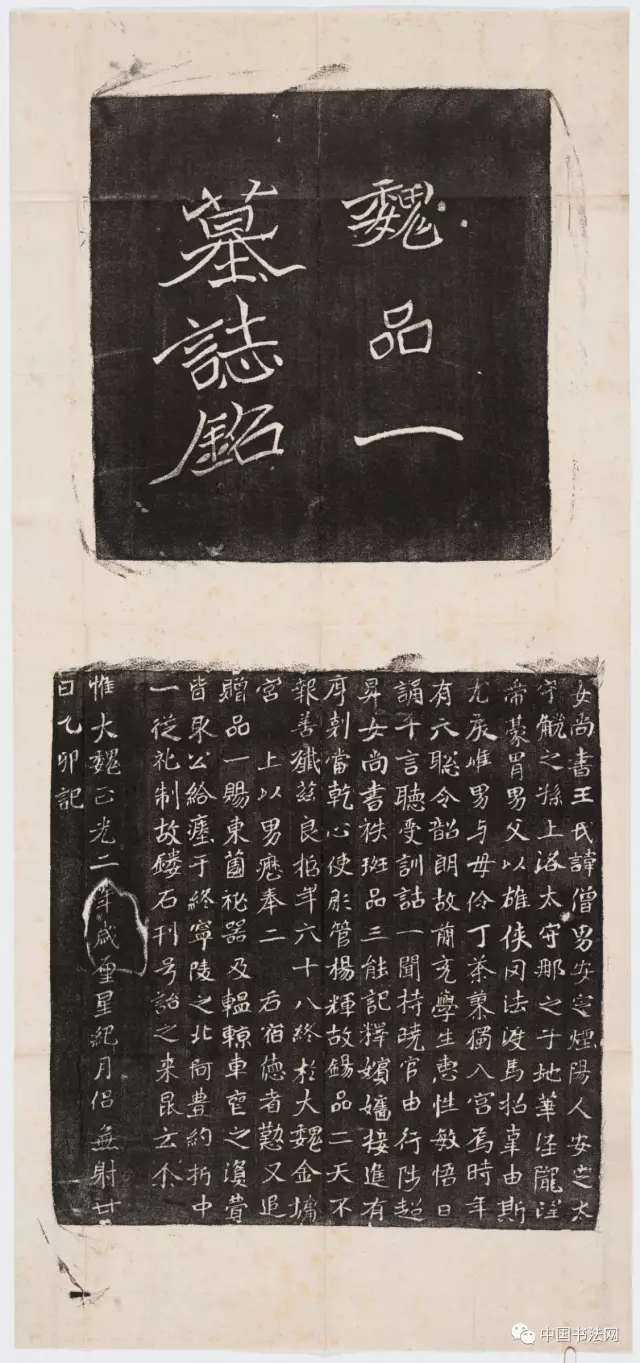 魏品一
墓誌銘
女尚書王氏諱僧男安定煙陽人安定太
守觥之孫上洛太守那之子地華涇隴望
帝蒙胄男父以雄俠罔法渡馬招辜由斯
尤戾唯男与母伶丁荼蓼獨入宮焉時年
有六聡令韶朗故簡充學生惠性敏悟日
誦千言聽受訓詁一聞持曉官由行陟超
昇女尚書秩班品三能記釋嬪嬙接進有
序剋當乾心使彤管楊輝故錫品二天不
報善殲兹良哲年六十八終於大魏金墉
宮 上以男歷奉二 后宿德者懃又追
贈品一賜東園祕器及轀輬車窀之資費
皆取公給瘞于終寧陵之北阿豊約折中
一從礼制故鏤石刊号詒之来昆云尒
惟大魏正光二年歲星紀月侣無射廿
日乙卯記
中国书法网